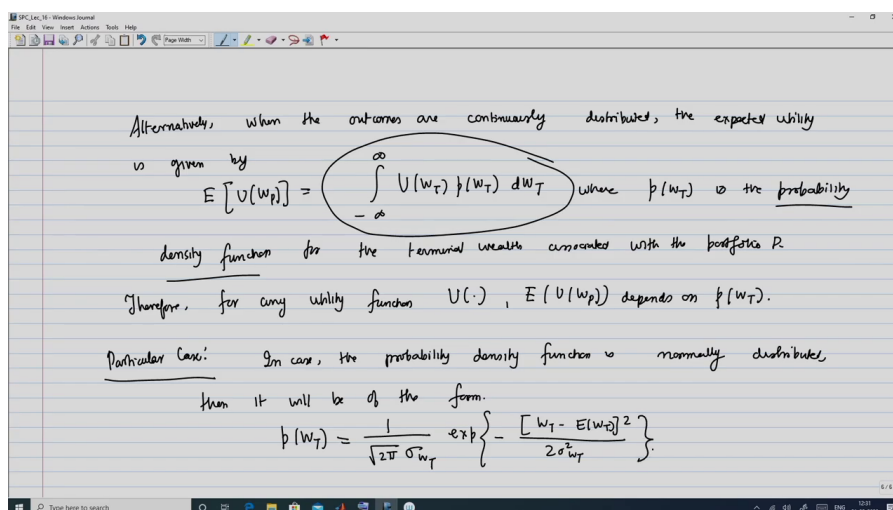 SPC_Lec_16 - Windows Journal
File Edit View Insert Actions Tools Help
Page Width
Alternatively, when the outcomes are continuously distributed, the expected utility
is given by
E [U(W_P)] = ∫_{-∞}^{∞} U(W_T) p(W_T) dW_T where p(W_T) is the probability
density function for the terminal wealth associated with the portfolio P.
Therefore, for any utility function U(·), E(U(W_P)) depends on p(W_T).
Particular Case: In case, the probability density function is normally distributed,
then it will be of the form.
p(W_T) = 1/(√2π σ_{W_T}) exp{ - [W_T - E(W_T)]^2 / 2σ^2_{W_T} }.
6/6
Type here to search
ENG
12:31